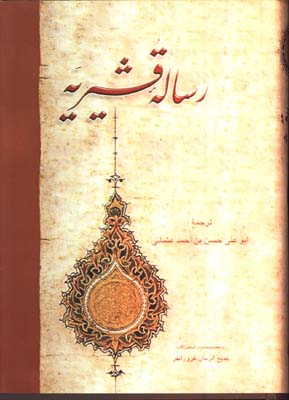 رسالهٔ قشیریه
ترجمهٔ
ابو علی حسن بن احمد عثمانی
با تصحیحات و استدراکات
بدیع الزمان فروزانفر